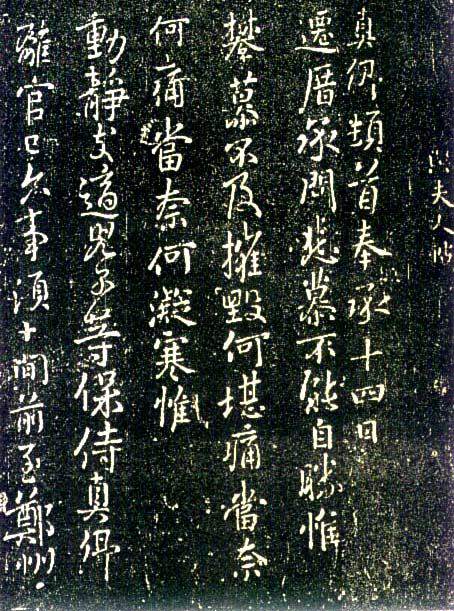 夫人帖
真卿頓首奉承十四日
遷厝承問悲慕不能自勝惟
攀慕不及摧毀何堪痛當奈
何痛當奈何凝寒惟
動靜支適兒子等保侍真卿
離官已久事須十間前至鄭州